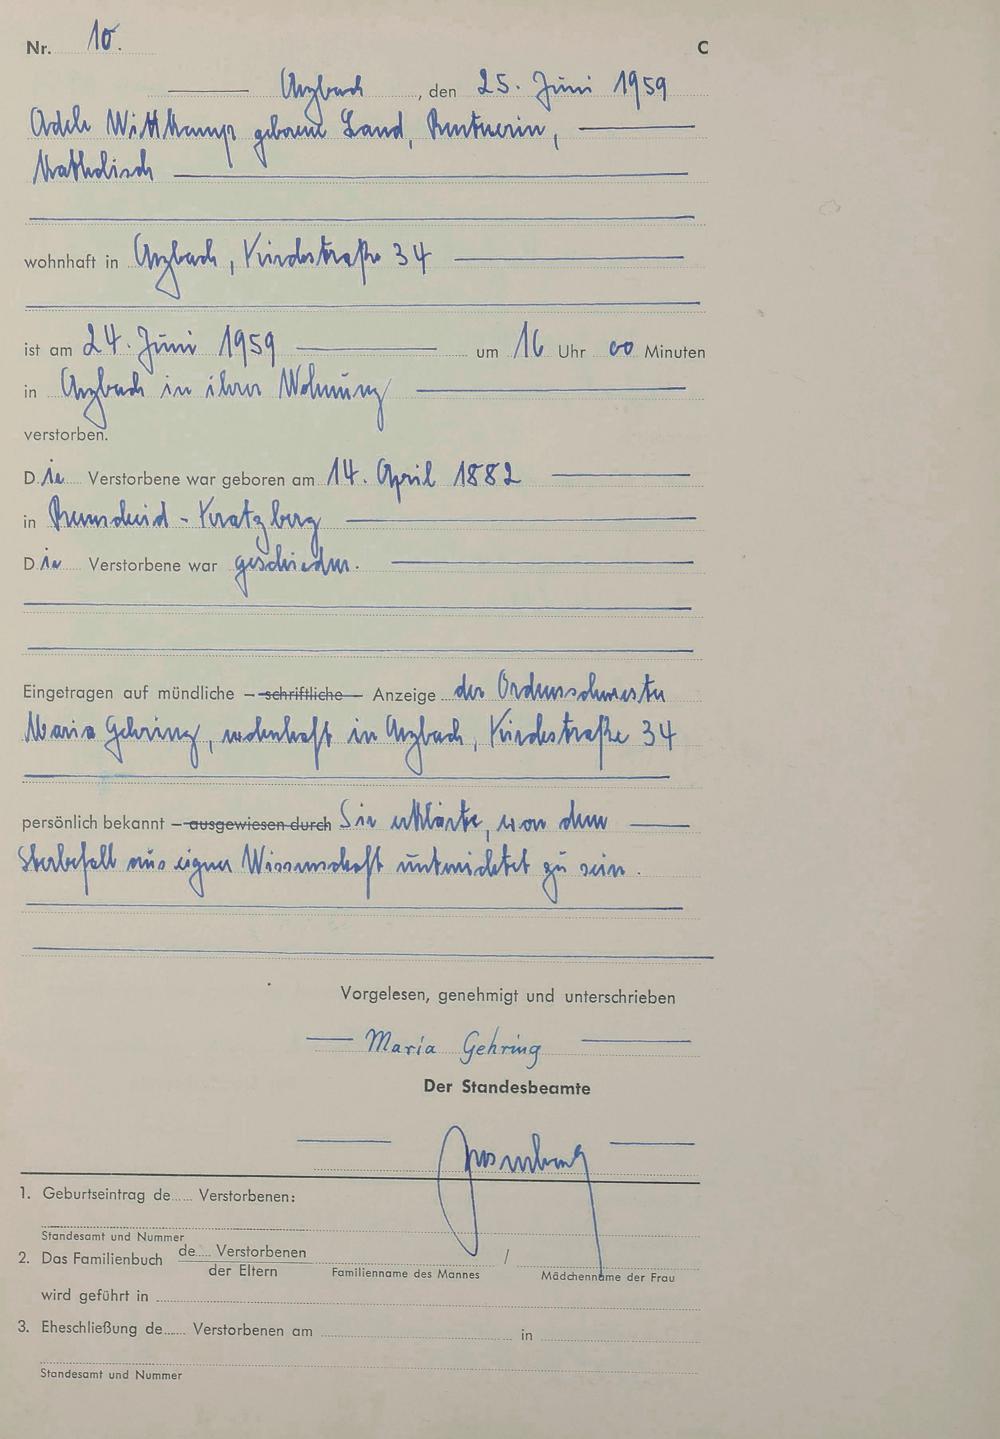 Nr. 10. C
Arzbach, den 25. Juni 1959
Adele Wittkamp geborene Land, Rentnerin,
katholisch
wohnhaft in Arzbach, Kirchstraße 34
ist am 24. Juni 1959 um 16 Uhr 00 Minuten
in Arzbach in ihrer Wohnung
verstorben.
Die Verstorbene war geboren am 14. April 1882
in Remscheid - Kratzberg
Die Verstorbene war geschieden.
Eingetragen auf mündliche – schriftliche – Anzeige der Ordensschwester
Maria Gehring, wohnhaft in Arzbach, Kirchstraße 34
persönlich bekannt – ausgewiesen durch Sie erklärte, von dem
Sterbefall aus eigner Wissenschaft unterrichtet zu sein.
Vorgelesen, genehmigt und unterschrieben
Maria Gehring
Der Standesbeamte
1. Geburtseintrag de...... Verstorbenen:
Standesamt und Nummer
2. Das Familienbuch de..... Verstorbenen /
der Eltern Familienname des Mannes Mädchenname der Frau
wird geführt in
3. Eheschließung de...... Verstorbenen am in
Standesamt und Nummer